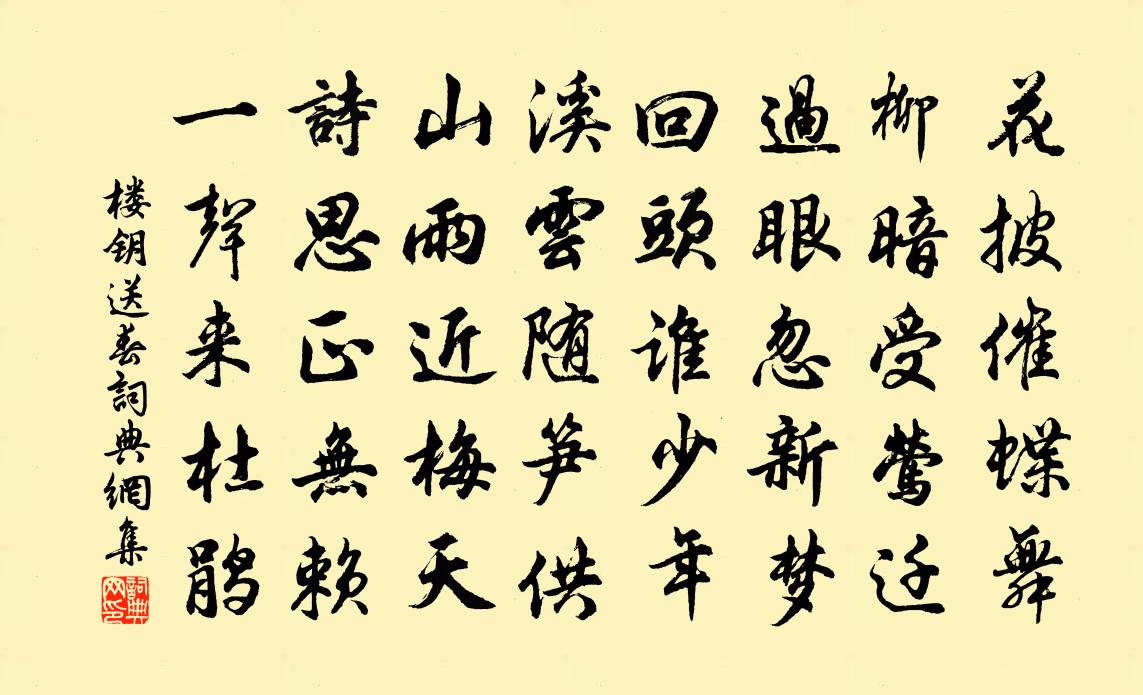 花披催蝶舞
柳暗受莺迁
過眼忽新梦
回頭谁少年
溪雲随笋供
山雨近梅天
詩思正無赖
一聲来杜鹃
楼钥送春詞典網集
詞典网印